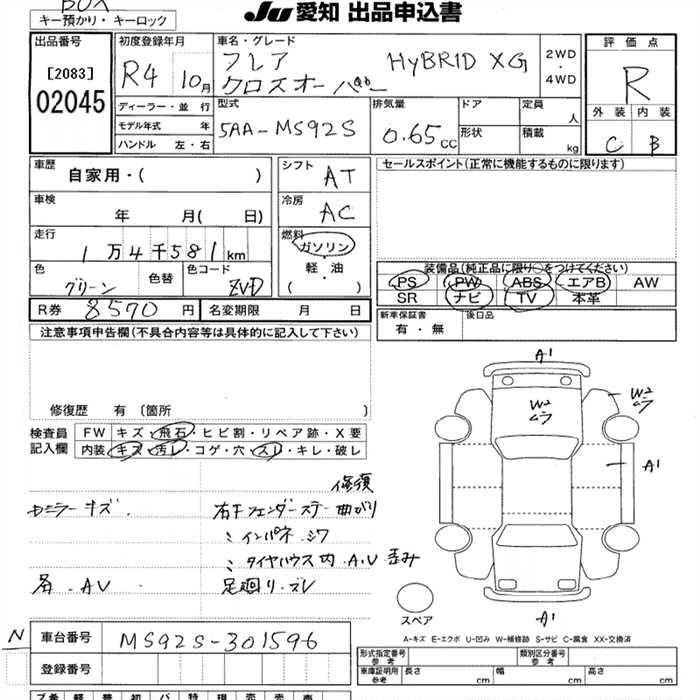 BOX
キー預かり・キーロック
JU 愛知 出品申込書
出品番号
[2083]
02045
初度登録年月
R4 10月
ディーラー・並 行
モデル年式 年
ハンドル 左・右
車名・グレード
フレア HYBRID XG
クロスオーバー
2WD
・
4WD
型式
5AA-MS92S
排気量
0.65cc
ドア
形状
定員
人
積載
kg
評 価 点
R
外 装 内 装
C B
車歴
自家用・( )
車検
年 月( 日)
走行
1万4千581km
色
グリーン
色替
色コード
ZVD
シフト
AT
冷房
AC
燃料
ガソリン
・
軽・油
( )
セールスポイント(正常に機能するものに限ります)
装備品(純正品に限り○をつけてください)
PS PW ABS エアB AW
SR ナビ TV 本革
R券 8570円 名変期限 月 日
新車保証書
有・無
後日品
注意事項申告欄(不具合内容等は具体的に記入して下さい)
修復歴 有 (箇所 )
検査員
記入欄
FW キズ・飛石・ヒビ割・リペア跡・X要
内装 キズ・汚レ・コゲ・穴・スレ・キレ・破レ
修復
右F フェンダーステー曲がり
〃 インパネ シワ
〃 タイヤハウス内 A.U 歪み
各 A.U 足廻り.ズレ
A1
W2
W2
A1
A1
スペア
A-キズ E-エクボ U-凹み W-補修跡 S-サビ C-腐食 XX-交換済
N
車台番号 MS92S-301596
登録番号
形式指定番号
参 考
類別区分番号
参 考
車庫証明用
参 考
長さ cm 幅 cm 高さ cm